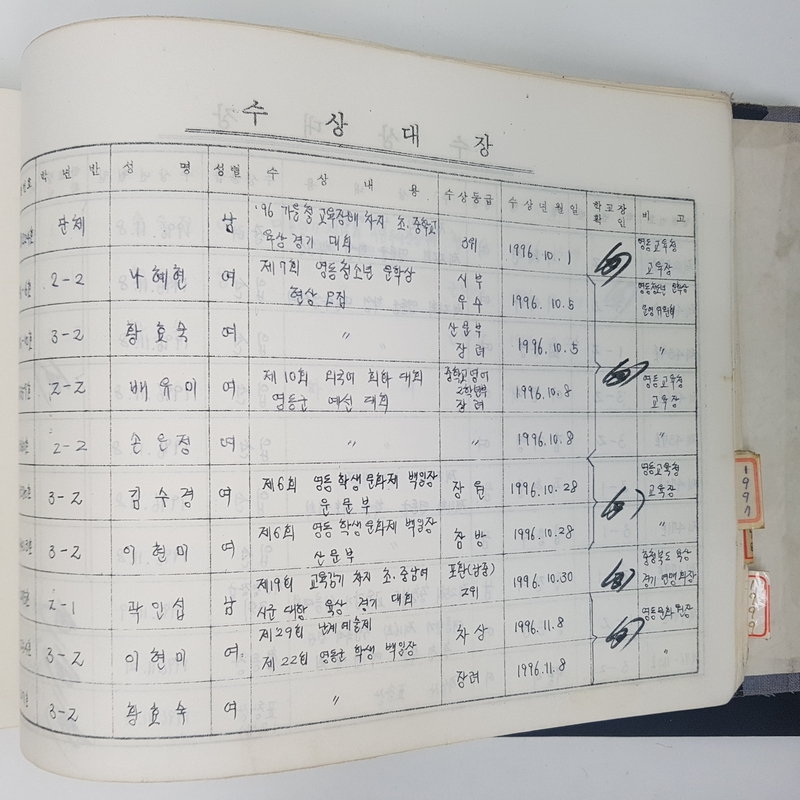 수 상 대 장
호 학 년 반 성 명 성별 수 상 내 용 수상등급 수상년월일 학교장 확인 비 고
단체 남 '96 가을철 교육장배 차지 초·중학교 육상 경기 대회 3위 1996. 10. 1 영동교육청 교육장
2-2 나혜현 여 제7회 영동청소년 문학상 현상 모집 시부 우수 1996. 10. 5 영동청소년 문학상 운영위원회
3-2 황효숙 여 〃 산문부 장려 1996. 10. 5 〃
2-2 배유미 여 제10회 외국어 회화 대회 영동군 예선 대회 중학교영어 2학년부 장려 1996. 10. 8 영동교육청 교육장
2-2 손은정 여 〃 〃 1996. 10. 8 〃
3-2 김수경 여 제6회 영동 학생문화제 백일장 운문부 장원 1996. 10. 28 영동교육청 교육장
3-2 이현미 여 제6회 영동 학생문화제 백일장 산문부 참방 1996. 10. 28 〃
2-1 곽인섭 남 제19회 교육감기 차지 초·중남여 시군 대항 육상 경기 대회 포환(남중) 2위 1996. 10. 30 충청북도 육상 경기 연맹회장
3-2 이현미 여 제29회 난계예술제 제22회 영동군 학생 백일장 차상 1996. 11. 8 영동문화원장
3-2 황효숙 여 〃 장려 1996. 11. 8 〃
1997
1999